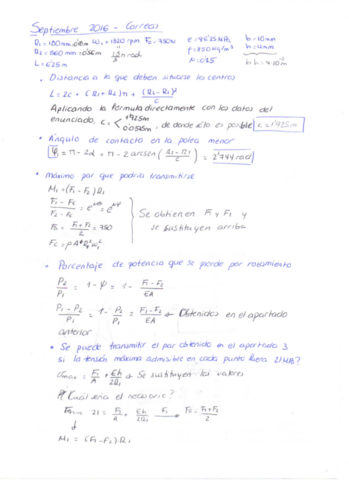 Septiembre 2016 - Correas
R₁ = 100mm = 0'1m
R₂ = 560mm = 0'56m
L =
F₀ = 750N
b = 10mm
h = 4mm
• Distancia a la que deben situarse los centros
L = 2c + (R₁+R₂)π + (R₂-R₁)²/c
Aplicando la fórmula directamente con los datos del
enunciado, c = de donde sólo es posible c = 1'925m
• Ángulo de contacto en la polea menor
φ₁ = π - 2α = π - 2 arcsen = 2'744 rad
• Máximo par que podría transmitirse
M₁ = (F₁-F₂)R₁
Se obtienen F₁ y F₂ y
se sustituyen arriba
F₀ = (F₁+F₂)/2 = 750
• Porcentaje de potencia que se pierde por rozamiento
P₂/P₁ = 1 - ψ = 1 - (F₁-F₂)/EA
(P₁-P₂)/P₁ = 1 - P₂/P₁ = (F₁-F₂)/EA ← Obtenidos en el apartado
anterior
• Se puede transmitir el par obtenido en el apartado 3
si la tensión máxima admisible en cada punto fuera 21 MPa?
σmax = F₁/A + Eh/2R₁ → Se sustituyen los valores
¿Cuál sería el necesario?
21 = F₁/A + Eh/2R₁ F₁ → F₀ = (F₁+F₂)/2
M₁ = (F₁-F₂)·R₁